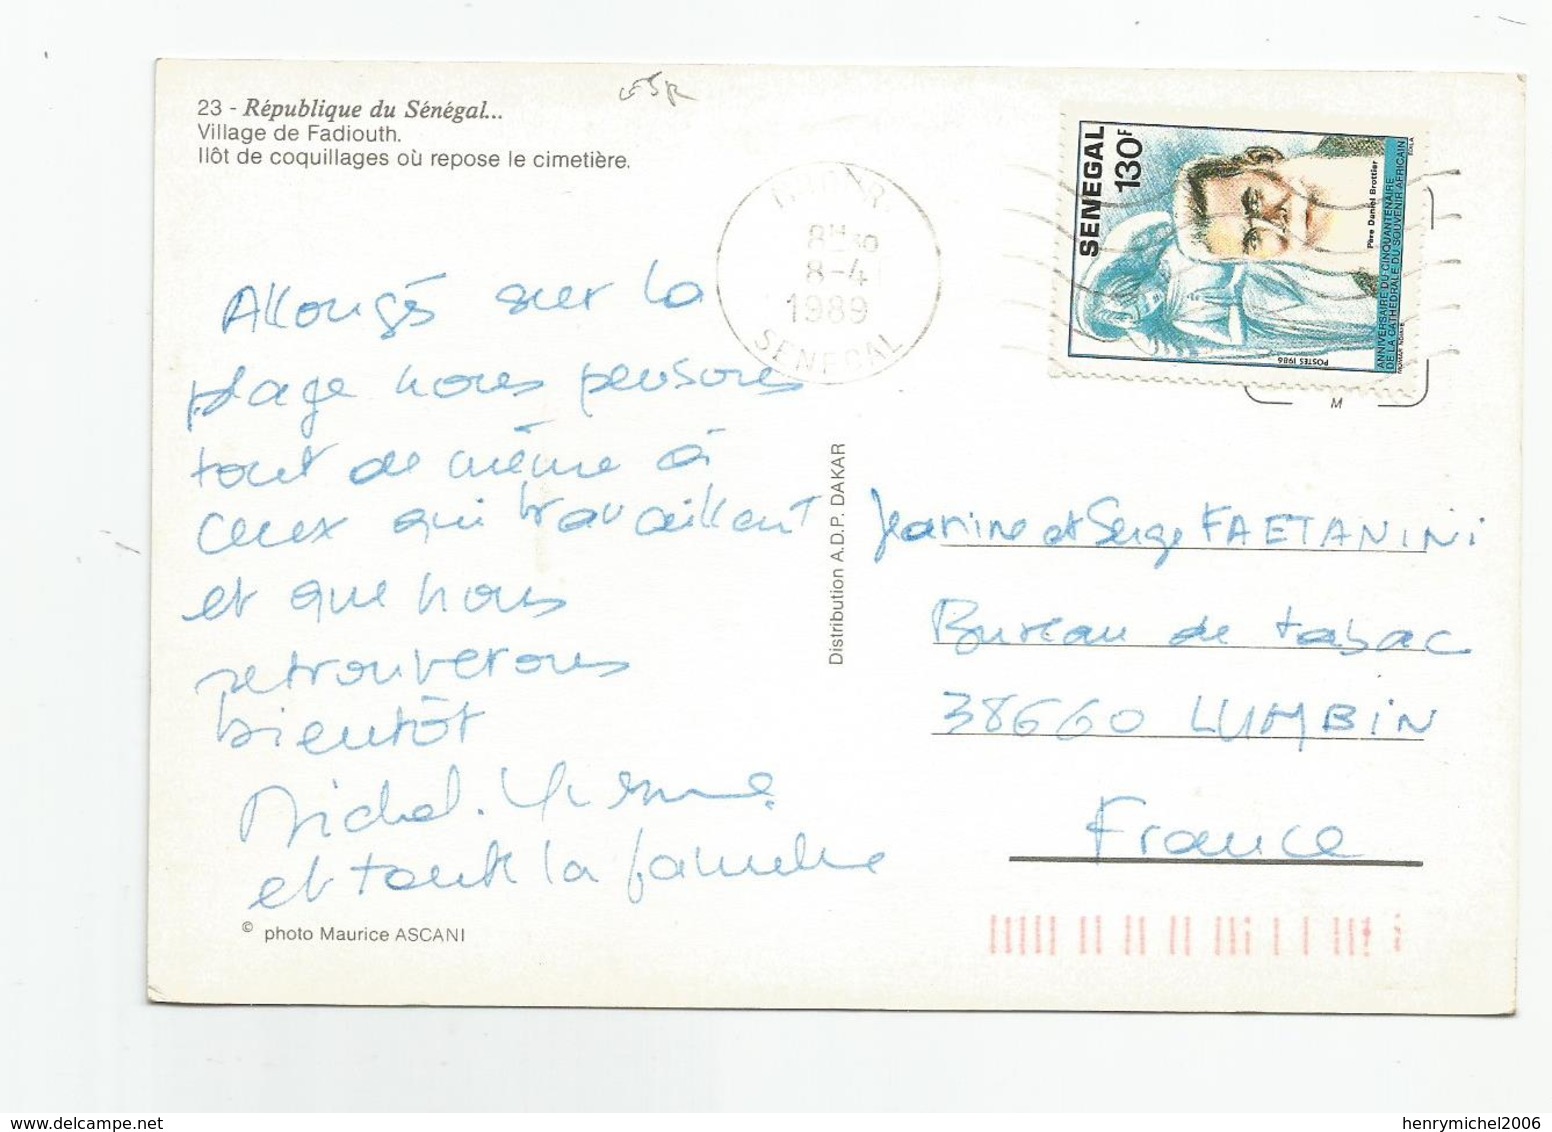 23 - République du Sénégal...
Village de Fadiouth.
Ilôt de coquillages où repose le cimetière.
8H30
8-4
1989
SENEGAL
SENEGAL
130F
Père Daniel Brottier
ANNIVERSAIRE DU CINQUANTENAIRE
DE LA CATHEDRALE DU SOUVENIR AFRICAIN
POSTES 1986
M
Allongés sur la
plage nous pensons
tout de même à
ceux qui travaillent
et que nous
retrouverons
bientôt
Michel.
et toute la famille
© photo Maurice ASCANI
Distribution A.D.P. DAKAR
Jeanine et Serge FAETANINI
Bureau de tabac
38660 LUMBIN
France
delcampe.net
henrymichel2006